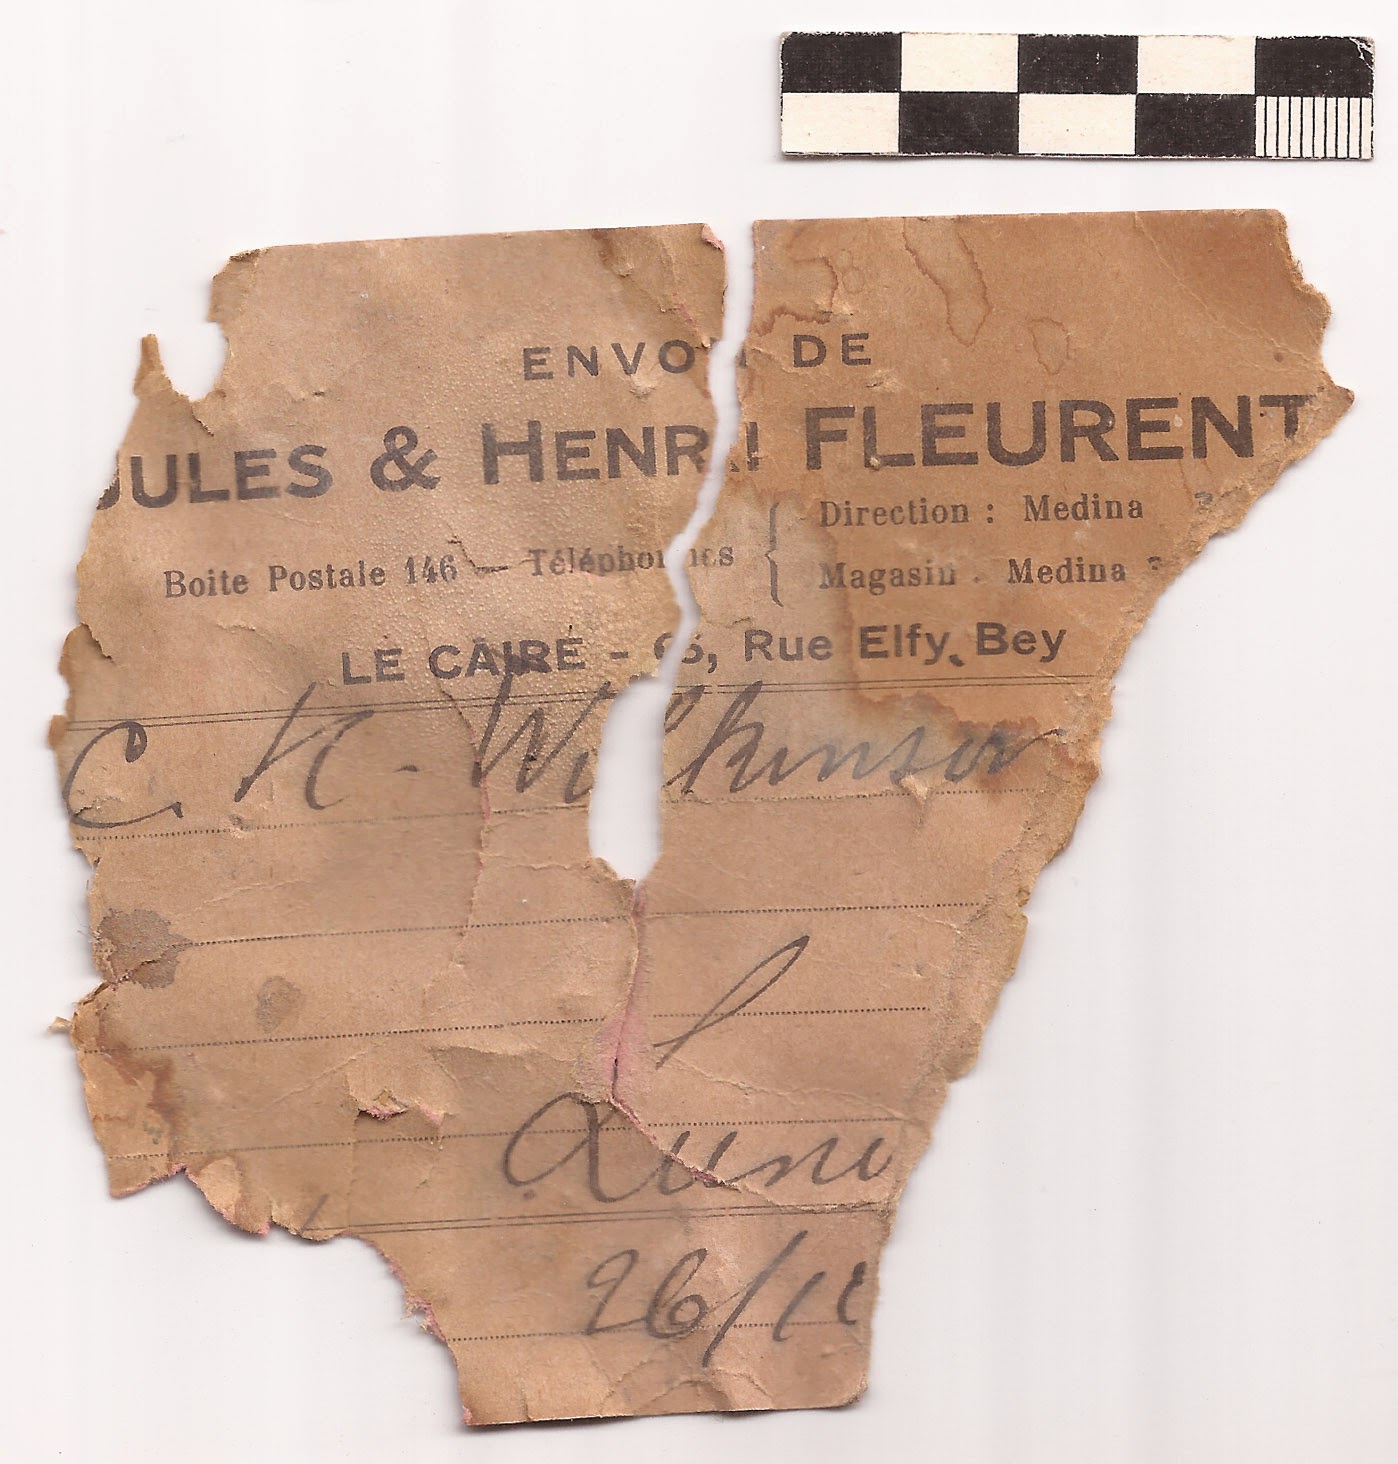 ENVOI DE
JULES & HENRI FLEURENT
Boite Postale 146 — Téléphones { Direction : Medina
Magasin : Medina
LE CAIRE - Rue Elfy Bey
C. K. Wilkinson
26/12